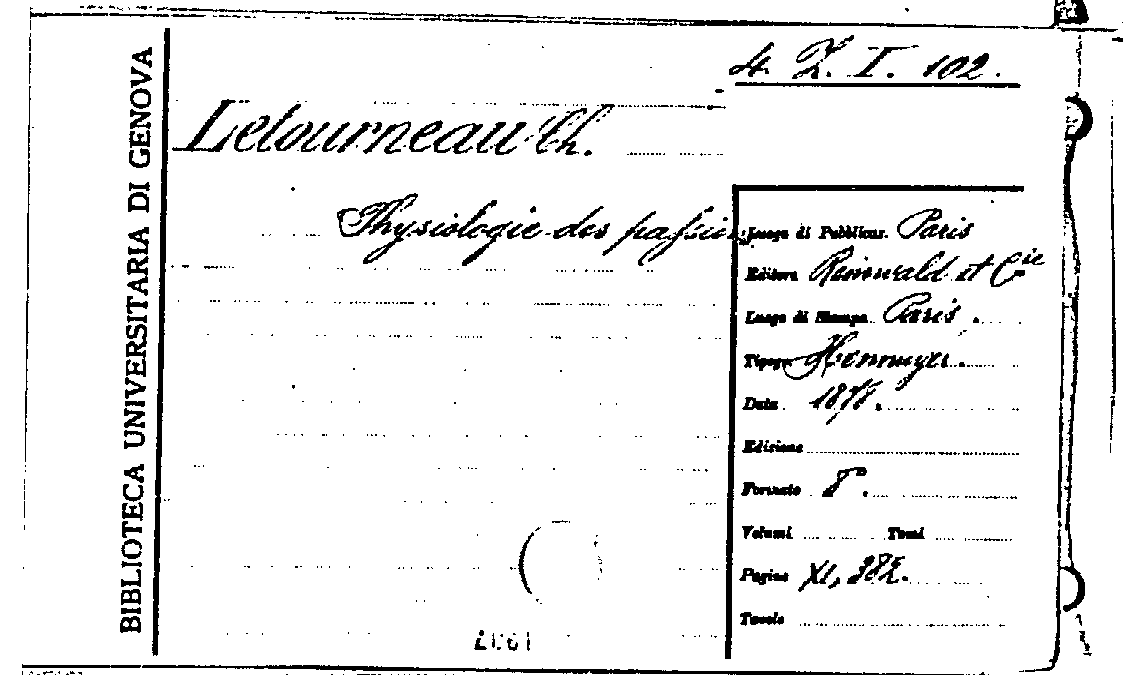 4. Z. I. 102.
BIBLIOTECA UNIVERSITARIA DI GENOVA
Letourneau Ch.
Physiologie des passions
Luogo di Pubblicaz. Paris
Editore Reinwald et Cie
Luogo di Stampa Paris.
Tipogr. Hennuyer.
Data 1878.
Edizione
Formato 8°.
Volumi Tomi
Pagine XI, 382.
Tavole